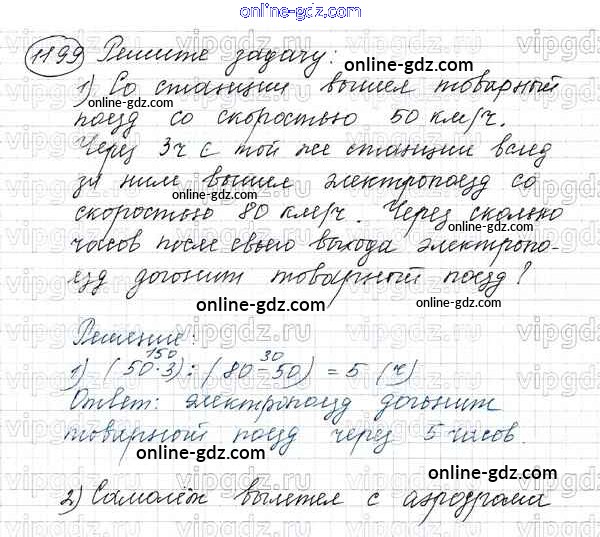 online-gdz.com
1199 Решите задачу:
online-gdz.com
1) Со станции вышел товарный
online-gdz.com
поезд со скоростью 50 км/ч.
Через 3ч с той же станции вслед
online-gdz.com
за ним вышел электропоезд со
online-gdz.com
скоростью 80 км/ч. Через сколько
online-gdz.com
часов после своего выхода электропо-
езд догонит товарный поезд?
online-gdz.com
Решение:
online-gdz.com
150 30
1) (50·3) : (80-50) = 5 (ч)
online-gdz.com
Ответ: электропоезд догонит
товарный поезд через 5 часов.
online-gdz.com
online-gdz.com
2) Самолёт вылетел с аэродрома
online-gdz.com